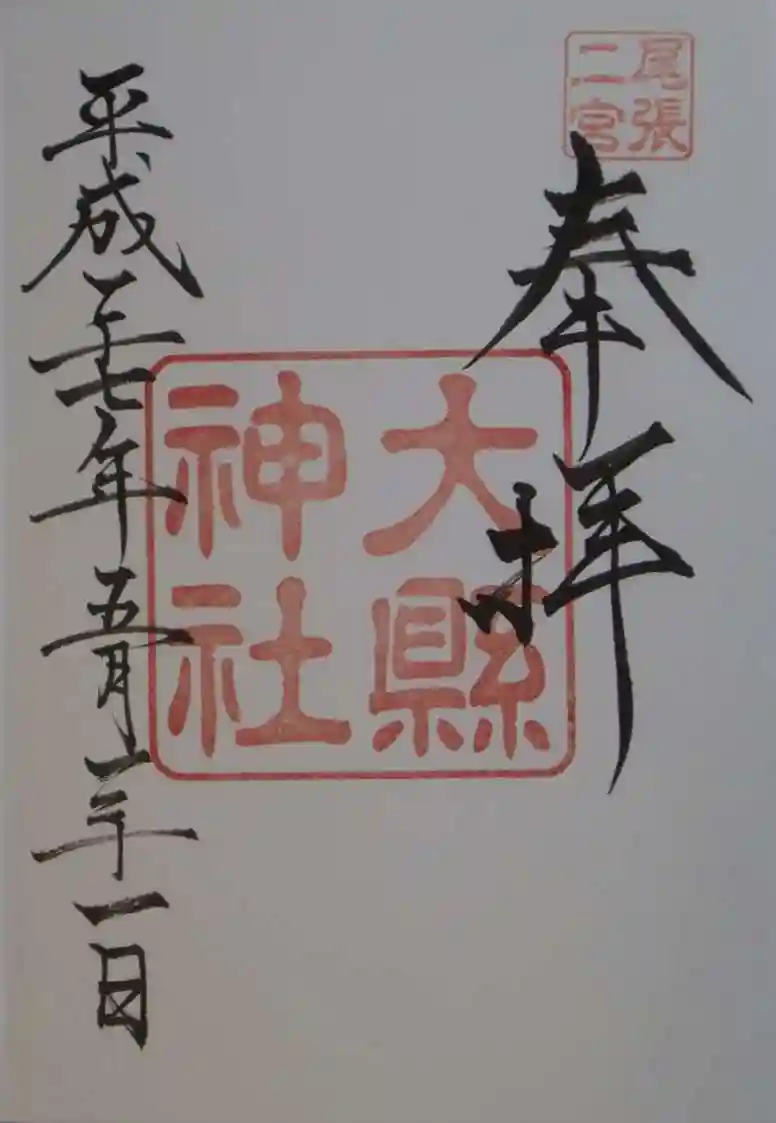 尾張
二宮
奉拝
大縣
神社
平成二十七年五月二十一日